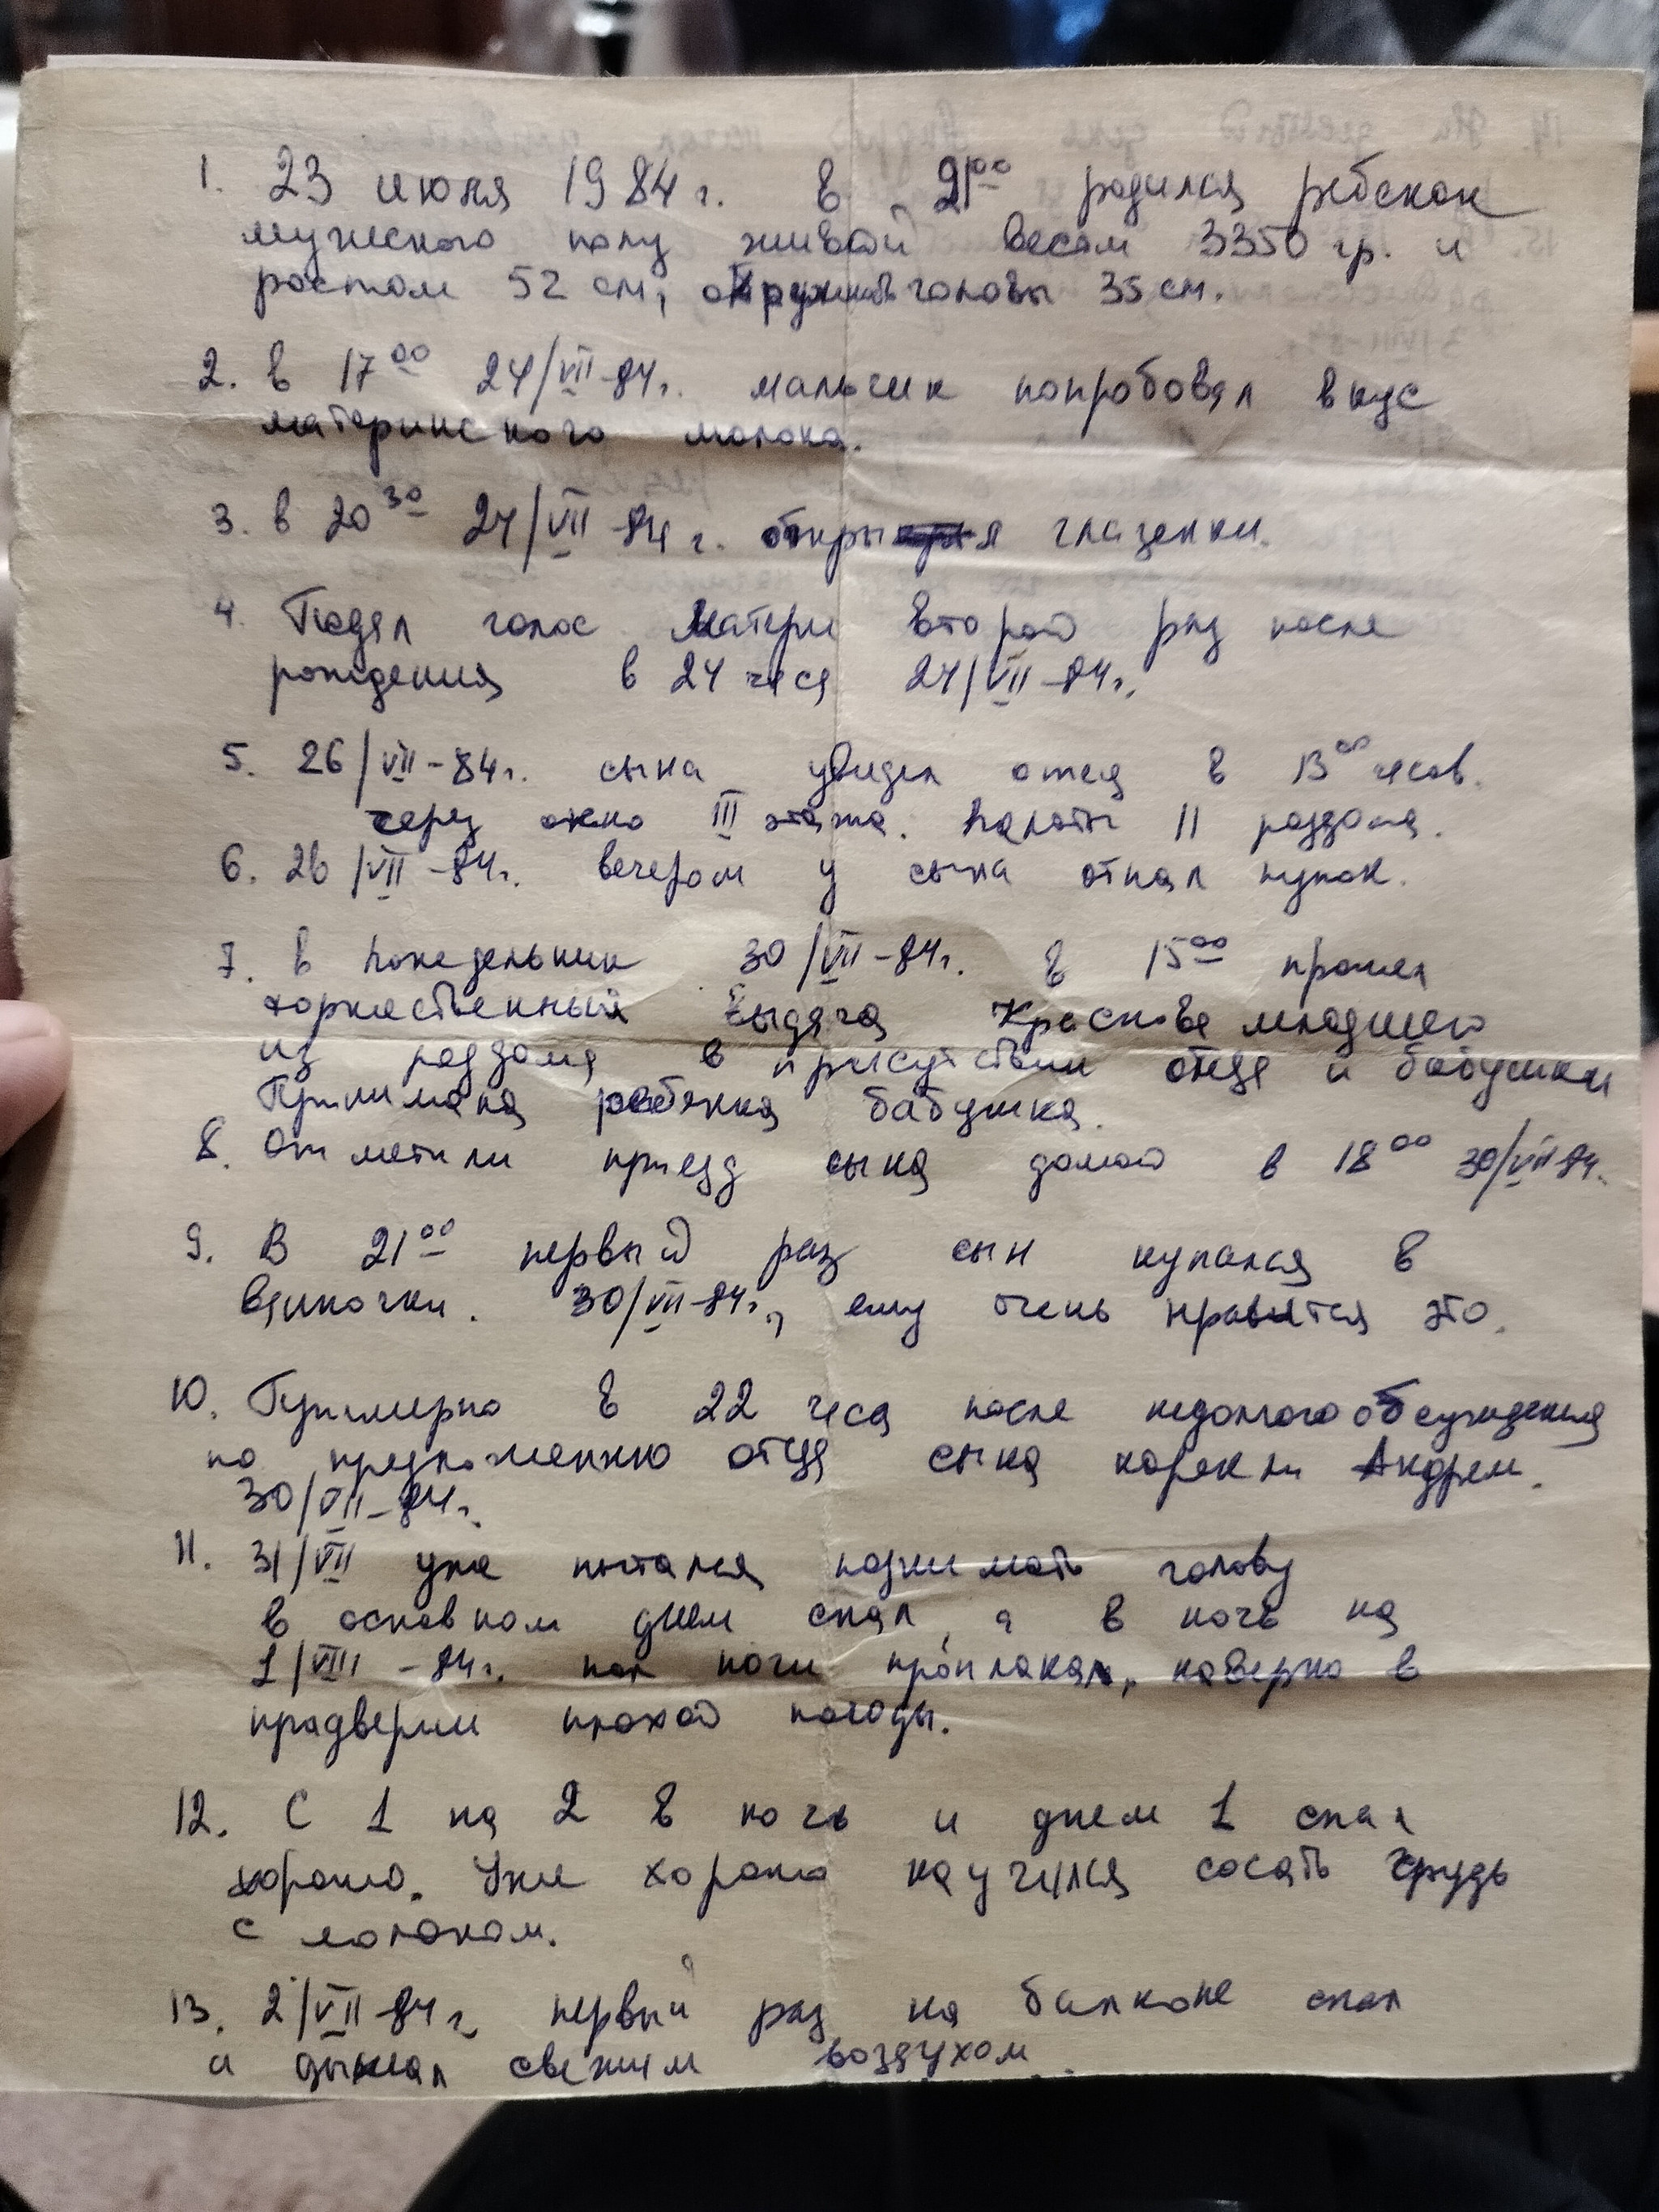 1. 23 июля 1984 г. в 21⁰⁰ родился ребенок
мужского полу живой весом 3350 гр. и
ростом 52 см, окружность головы 35 см.
2. в 17⁰⁰ 24/VII-84г. мальчик попробовал вкус
материнского молока.
3. в 20³⁰ 24/VII-84 г. открыл глазенки.
4. Подал голос матери второй раз после
рождения в 24 часа 24/VII-84г.
5. 26/VII-84г. сына увидел отец в 13⁰⁰ часов.
через окно III этажа. палаты 11 роддома.
6. 26/VII-84г. вечером у сына отпал пупок.
7. в понедельник 30/VII-84г. в 15⁰⁰ прошел
торжественный выдача Краснова младшего
из роддома в присутствии отца и бабушки
Принимала ребенка бабушка.
8. Отметили приезд сына домой в 18⁰⁰ 30/VII 84.
9. В 21⁰⁰ первый раз сын купался в
ванночки. 30/VII-84г., ему очень нравится это.
10. Примерно в 22 часа после недолгого обсуждения
по предложению отца сына нарекли Андреем.
30/VII-84г.
11. 31/VII уже пытался поднимать голову
в основном днем спал, а в ночь на
1/VIII-84г. пол ночи проплакал, наверно в
прадверии плохой погоды.
12. С 1 на 2 в ночь и днем 1 спал
хорошо. Уже хорошо научился сосать грудь
с молоком.
13. 2/VII-84г. первый раз на балконе спал
и дышал свежим воздухом.